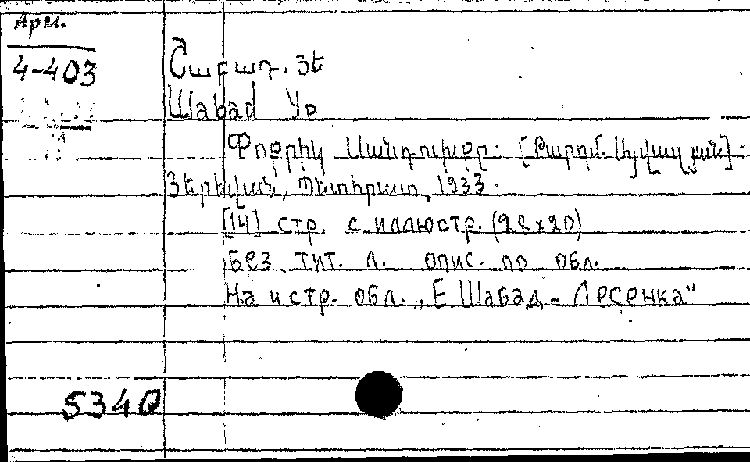 Арм.
4-403
Շաբադ. Յե
Шabad Ye
Փոքրիկ Սանդուխքը. [Թարգմ.
Յերևան, Պետհրատ, 1933.
[14] стр. с иллюстр. (26х20)
Без тит. л. опис. по обл.
На 4 стр. обл. „Е. Шабад - Лесенка"
5340